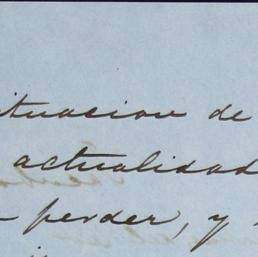 ituacion de
actualidad
perder, y